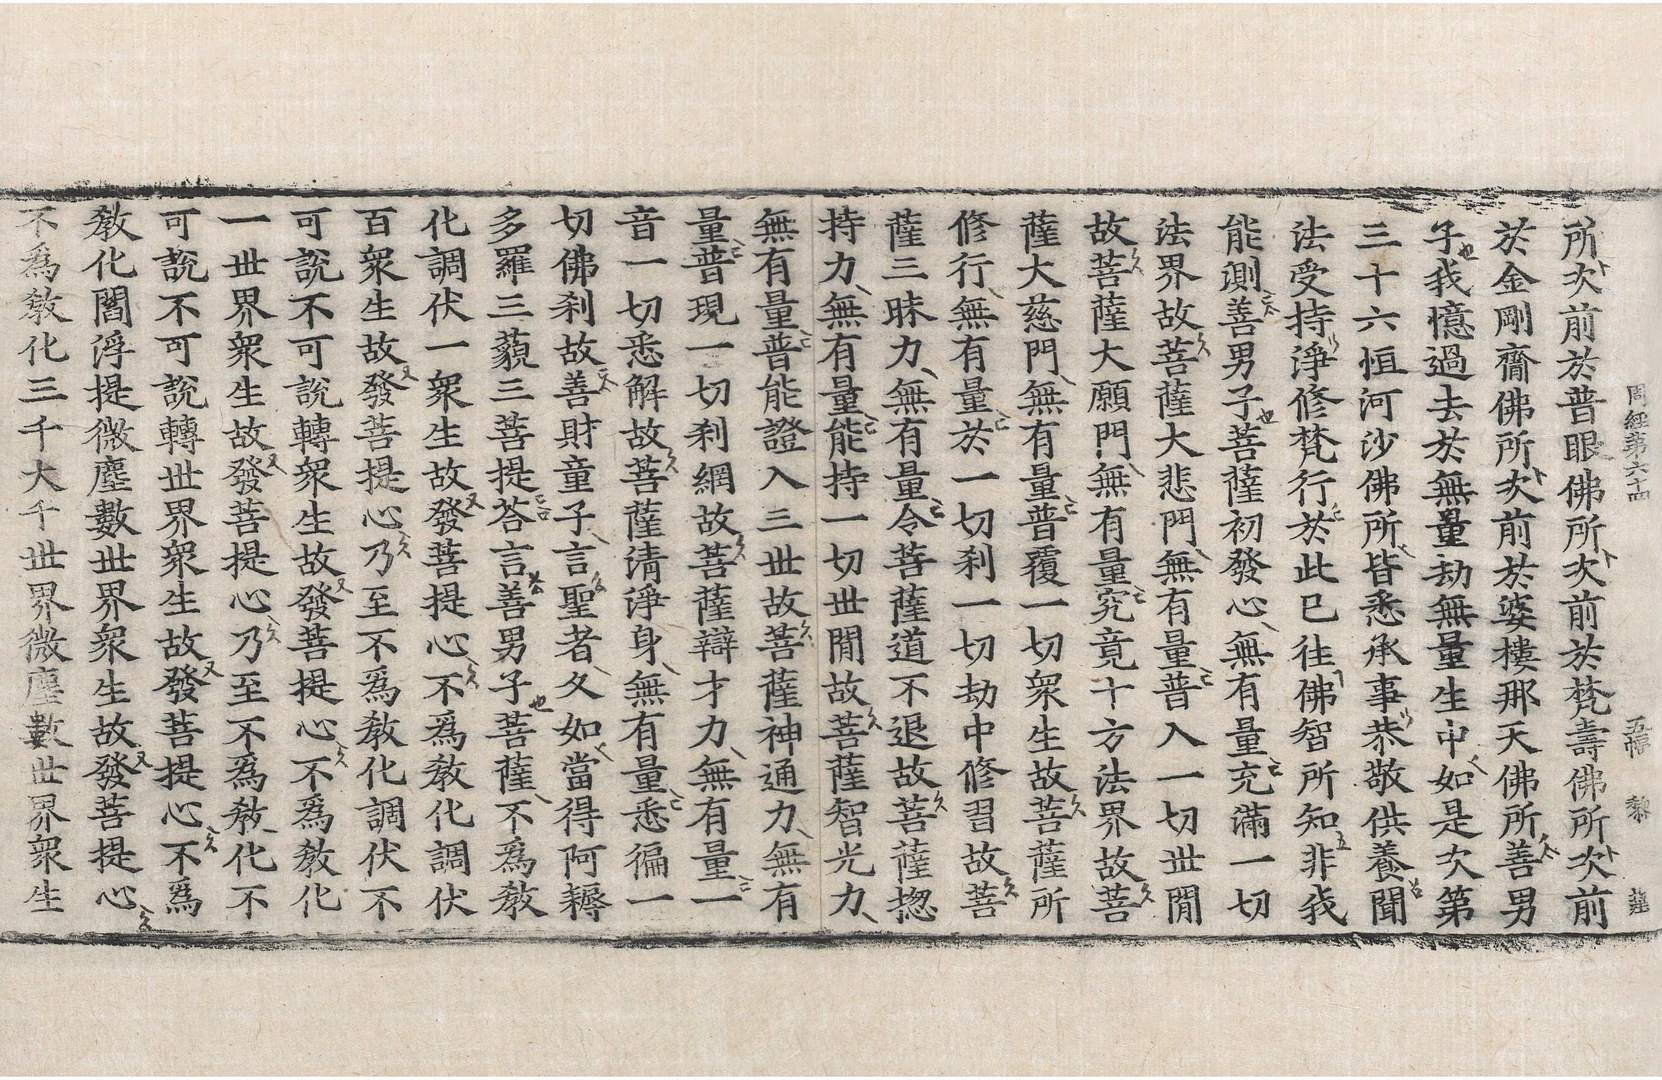 周經第六十四 五幅 黎
所次前於普眼佛所次前於梵壽佛所次前
於金剛齎佛所次前於婆樓那天佛所善男
子我憶過去於無量劫無量生中如是次第
三十六恒河沙佛所皆悉承事恭敬供養聞
法受持淨修梵行於此已往佛智所知非我
能測善男子菩薩初發心無有量充滿一切
法界故菩薩大悲門無有量普入一切世閒
故菩薩大願門無有量究竟十方法界故菩
薩大慈門無有量普覆一切衆生故菩薩所
修行無有量於一切刹一切劫中修習故菩
薩三昧力無有量令菩薩道不退故菩薩揔
持力無有量能持一切世閒故菩薩智光力
無有量普能證入三世故菩薩神通力無有
量普現一切刹網故菩薩辯才力無有量一
音一切悉解故菩薩清淨身無有量悉徧一
切佛刹故善財童子言聖者久如當得阿耨
多羅三藐三菩提荅言善男子菩薩不爲敎
化調伏一衆生故發菩提心不爲敎化調伏
百衆生故發菩提心乃至不爲敎化調伏不
可說不可說轉衆生故發菩提心不爲敎化
一世界衆生故發菩提心乃至不爲敎化不
可說不可說轉世界衆生故發菩提心不爲
敎化閻浮提微塵數世界衆生故發菩提心
不爲敎化三千大千世界微塵數世界衆生